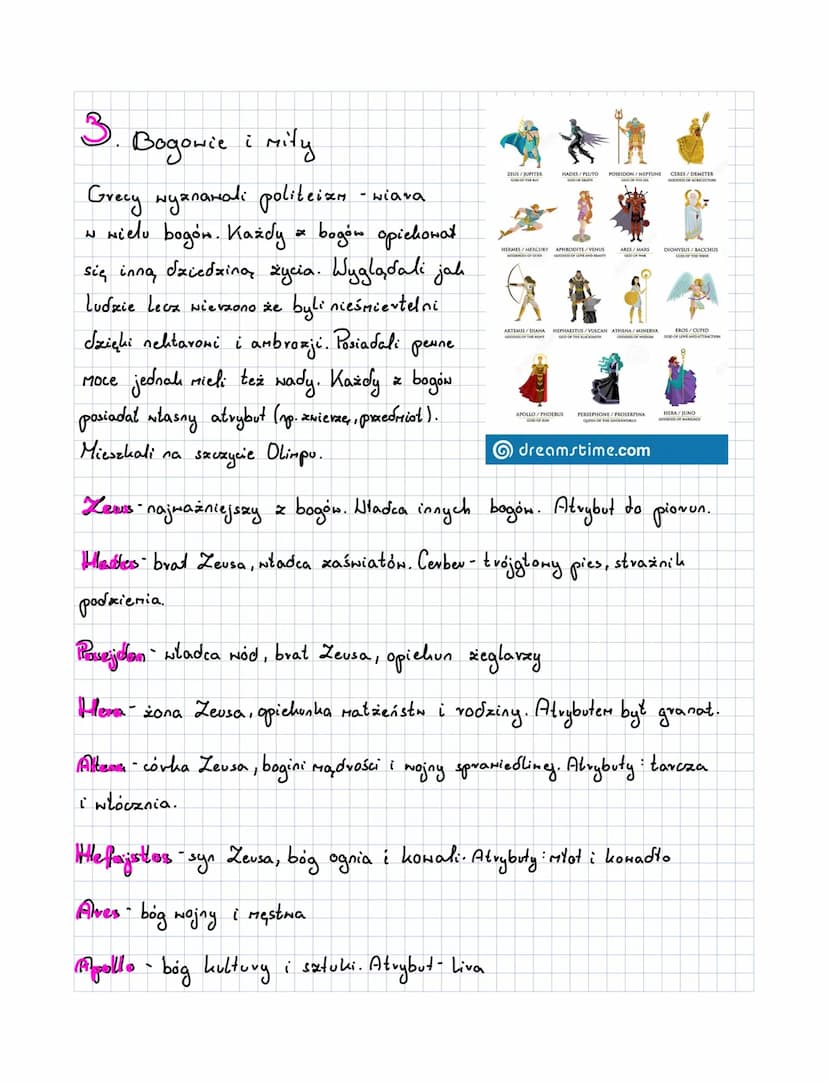 3. Bogowie i mity
Grecy wyznawali politeizm - wiara
w wielu bogów. Każdy z bogów opiekował
się inną dziedziną życia. Wyglądali jak
ludzie lecz wierzono że byli nieśmiertelni
dzięki nektarowi i ambrozji. Posiadali pewne
moce jednak mieli też wady. Każdy z bogów
posiadał własny atrybut (np. zwierzę, przedmiot).
Mieszkali na szczycie Olimpu.
ZEUS / JUPITER HADES / PLUTO POSEIDON / NEPTUNE CERES / DEMETER
GOD OF THE SKY GOD OF DEATH GOD OF THE SEA GODDESS OF AGRICULTURE
HERMES / MERCURY APHRODITE / VENUS ARES / MARS DIONYSUS / BACCHUS
GODDESS OF LOVE AND BEAUTY GOD OF WAR GOD OF THE WINE
ARTEMIS / DIANA HEPHAESTUS / VULCAN ATHENA / MINERVA EROS / CUPID
GODDESS OF THE HUNT GOD OF THE BLACKSMITH GODDESS OF WISDOM GOD OF LOVE AND ATTRACTION
APOLLO / PHOEBUS PERSEPHONE / PROSERPINA HERA / JUNO
GOD OF SUN QUEEN OF THE UNDERWORLD GODDESS OF MARRIAGE
dreamstime.com
Zeus - najważniejszy z bogów. Władca innych bogów. Atrybut to piorun.
Hades - brat Zeusa, władca zaświatów. Cerber - trójgłowy pies, strażnik
podziemia.
Posejdon - władca wód, brat Zeusa, opiekun żeglarzy
Hera - żona Zeusa, opiekunka małżeństw i rodziny. Atrybutem był granat.
Atena - córka Zeusa, bogini mądrości i wojny sprawiedliwej. Atrybuty: tarcza
i włócznia.
Hefajstos - syn Zeusa, bóg ognia i kowali. Atrybuty: młot i kowadło
Ares - bóg wojny i męstwa
Apollo - bóg kultury i sztuki. Atrybut - Lira